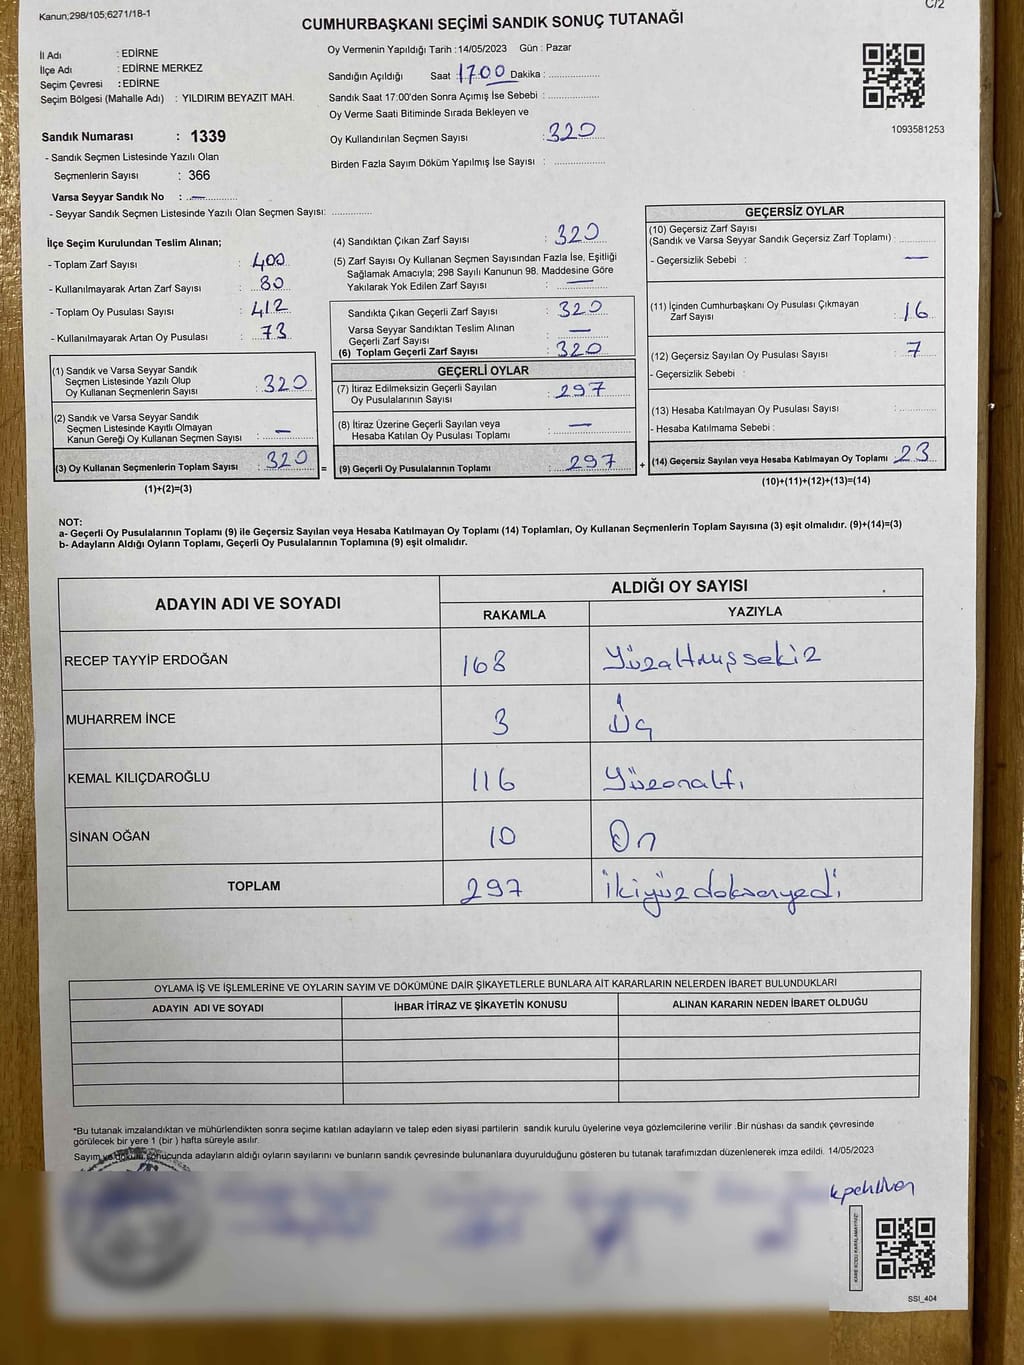 Kanun;298/105;6271/18-1
C/2
CUMHURBAŞKANI SEÇİMİ SANDIK SONUÇ TUTANAĞI
İl Adı : EDİRNE
İlçe Adı : EDİRNE MERKEZ
Seçim Çevresi : EDİRNE
Seçim Bölgesi (Mahalle Adı) : YILDIRIM BEYAZIT MAH.
Oy Vermenin Yapıldığı Tarih :14/05/2023 Gün : Pazar
Sandığın Açıldığı Saat 1700 Dakika : ..................
Sandık Saat 17:00'den Sonra Açımış İse Sebebi : ..................
Oy Verme Saati Bitiminde Sırada Bekleyen ve
Oy Kullandırılan Seçmen Sayısı : 320
Birden Fazla Sayım Döküm Yapılmış İse Sayısı : ..................
1093581253
Sandık Numarası : 1339
- Sandık Seçmen Listesinde Yazılı Olan
Seçmenlerin Sayısı : 366
Varsa Seyyar Sandık No : —
- Seyyar Sandık Seçmen Listesinde Yazılı Olan Seçmen Sayısı: ..............
İlçe Seçim Kurulundan Teslim Alınan;
- Toplam Zarf Sayısı : 400
- Kullanılmayarak Artan Zarf Sayısı : 80
- Toplam Oy Pusulası Sayısı : 412
- Kullanılmayarak Artan Oy Pusulası : 73
(1) Sandık ve Varsa Seyyar Sandık
Seçmen Listesinde Yazılı Olup
Oy Kullanan Seçmenlerin Sayısı : 320
(2) Sandık ve Varsa Seyyar Sandık
Seçmen Listesinde Kayıtlı Olmayan
Kanun Gereği Oy Kullanan Seçmen Sayısı : —
(3) Oy Kullanan Seçmenlerin Toplam Sayısı : 320 =
(1)+(2)=(3)
(4) Sandıktan Çıkan Zarf Sayısı : 320
(5) Zarf Sayısı Oy Kullanan Seçmen Sayısından Fazla İse, Eşitliği
Sağlamak Amacıyla; 298 Sayılı Kanunun 98. Maddesine Göre
Yakılarak Yok Edilen Zarf Sayısı : —
Sandıkta Çıkan Geçerli Zarf Sayısı : 320
Varsa Seyyar Sandıktan Teslim Alınan
Geçerli Zarf Sayısı : —
(6) Toplam Geçerli Zarf Sayısı : 320
GEÇERLİ OYLAR
(7) İtiraz Edilmeksizin Geçerli Sayılan
Oy Pusulalarının Sayısı : 297
(8) İtiraz Üzerine Geçerli Sayılan veya
Hesaba Katılan Oy Pusulası Toplamı : —
(9) Geçerli Oy Pusulalarının Toplamı : 297 +
GEÇERSİZ OYLAR
(10) Geçersiz Zarf Sayısı
(Sandık ve Varsa Seyyar Sandık Geçersiz Zarf Toplamı) : ............
- Geçersizlik Sebebi : —
(11) İçinden Cumhurbaşkanı Oy Pusulası Çıkmayan
Zarf Sayısı : 16
(12) Geçersiz Sayılan Oy Pusulası Sayısı : 7
- Geçersizlik Sebebi :
(13) Hesaba Katılmayan Oy Pusulası Sayısı : ............
- Hesaba Katılmama Sebebi :
(14) Geçersiz Sayılan veya Hesaba Katılmayan Oy Toplamı 23
(10)+(11)+(12)+(13)=(14)
NOT:
a- Geçerli Oy Pusulalarının Toplamı (9) ile Geçersiz Sayılan veya Hesaba Katılmayan Oy Toplamı (14) Toplamları, Oy Kullanan Seçmenlerin Toplam Sayısına (3) eşit olmalıdır. (9)+(14)=(3)
b- Adayların Aldığı Oyların Toplamı, Geçerli Oy Pusulalarının Toplamına (9) eşit olmalıdır.
ADAYIN ADI VE SOYADI
ALDIĞI OY SAYISI
RAKAMLA YAZIYLA
RECEP TAYYİP ERDOĞAN 168 Yüzaltmışsekiz
MUHARREM İNCE 3 Üç
KEMAL KILIÇDAROĞLU 116 Yüzonaltı
SİNAN OĞAN 10 On
TOPLAM 297 İkiyüzdoksanyedi
OYLAMA İŞ VE İŞLEMLERİNE VE OYLARIN SAYIM VE DÖKÜMÜNE DAİR ŞİKAYETLERLE BUNLARA AİT KARARLARIN NELERDEN İBARET BULUNDUKLARI
ADAYIN ADI VE SOYADI İHBAR İTİRAZ VE ŞİKAYETİN KONUSU ALINAN KARARIN NEDEN İBARET OLDUĞU
*Bu tutanak imzalandıktan ve mühürlendikten sonra seçime katılan adayların ve talep eden siyasi partilerin sandık kurulu üyelerine veya gözlemcilerine verilir .Bir nüshası da sandık çevresinde
görülecek bir yere 1 (bir ) hafta süreyle asılır.
Sayım ve döküm sonucunda adayların aldığı oyların sayılarını ve bunların sandık çevresinde bulunanlara duyurulduğunu gösteren bu tutanak tarafımızdan düzenlenerek imza edildi. 14/05/2023
KARE KODU KARALAMAYINIZ!
SSI_404